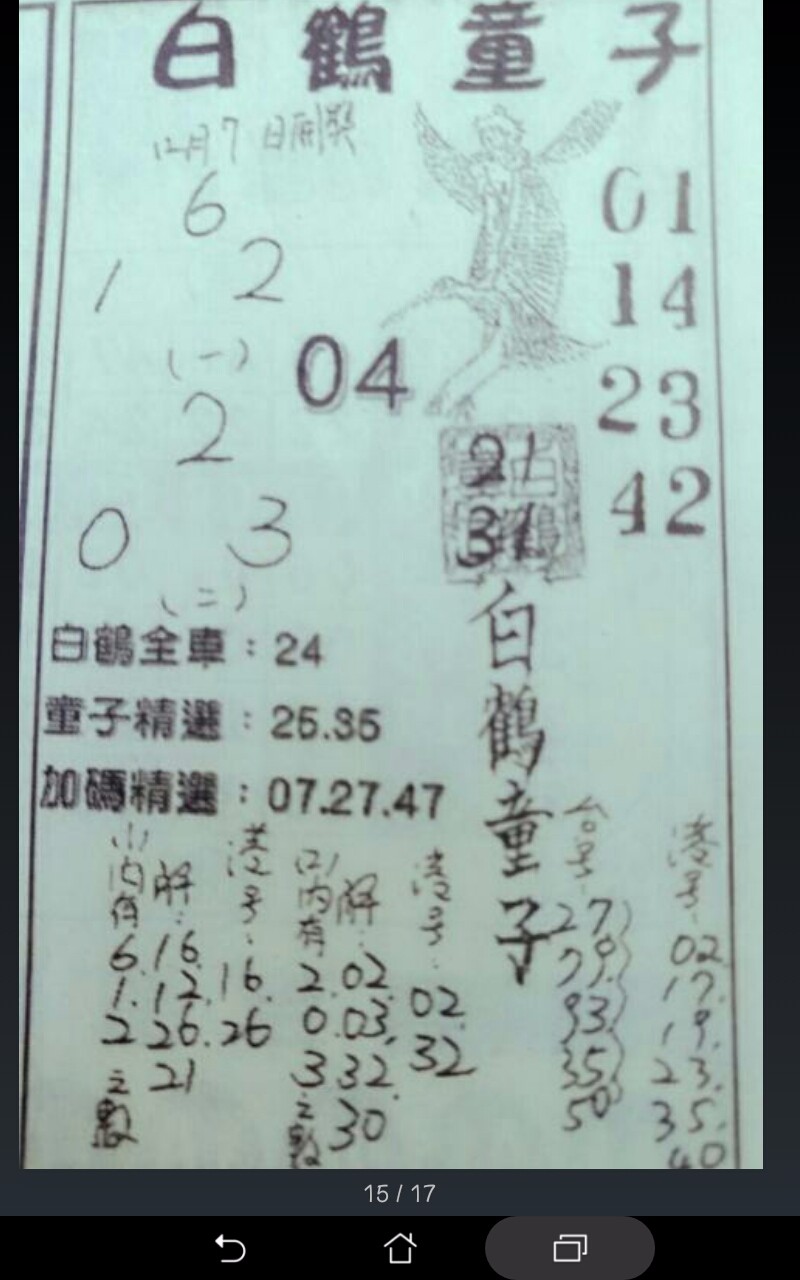 白鶴童子
12月7日開獎
6
1 2
(一)
04
2
0 3
(二)
01
14
23
42
21
31
白鶴全車：24
童子精選：25.35
加碼精選：07.27.47
白鶴童子
(1)內有
6.
1.
2
之數
解：
16.
12.
26.
21
港号：
16.
26
(2)內有
2.
0.
3
之數
解：
02.
03.
32.
30
港号：
02.
32
台号：
27
79
93
35
50
港号：
02.
17.
19.
23.
35.
40